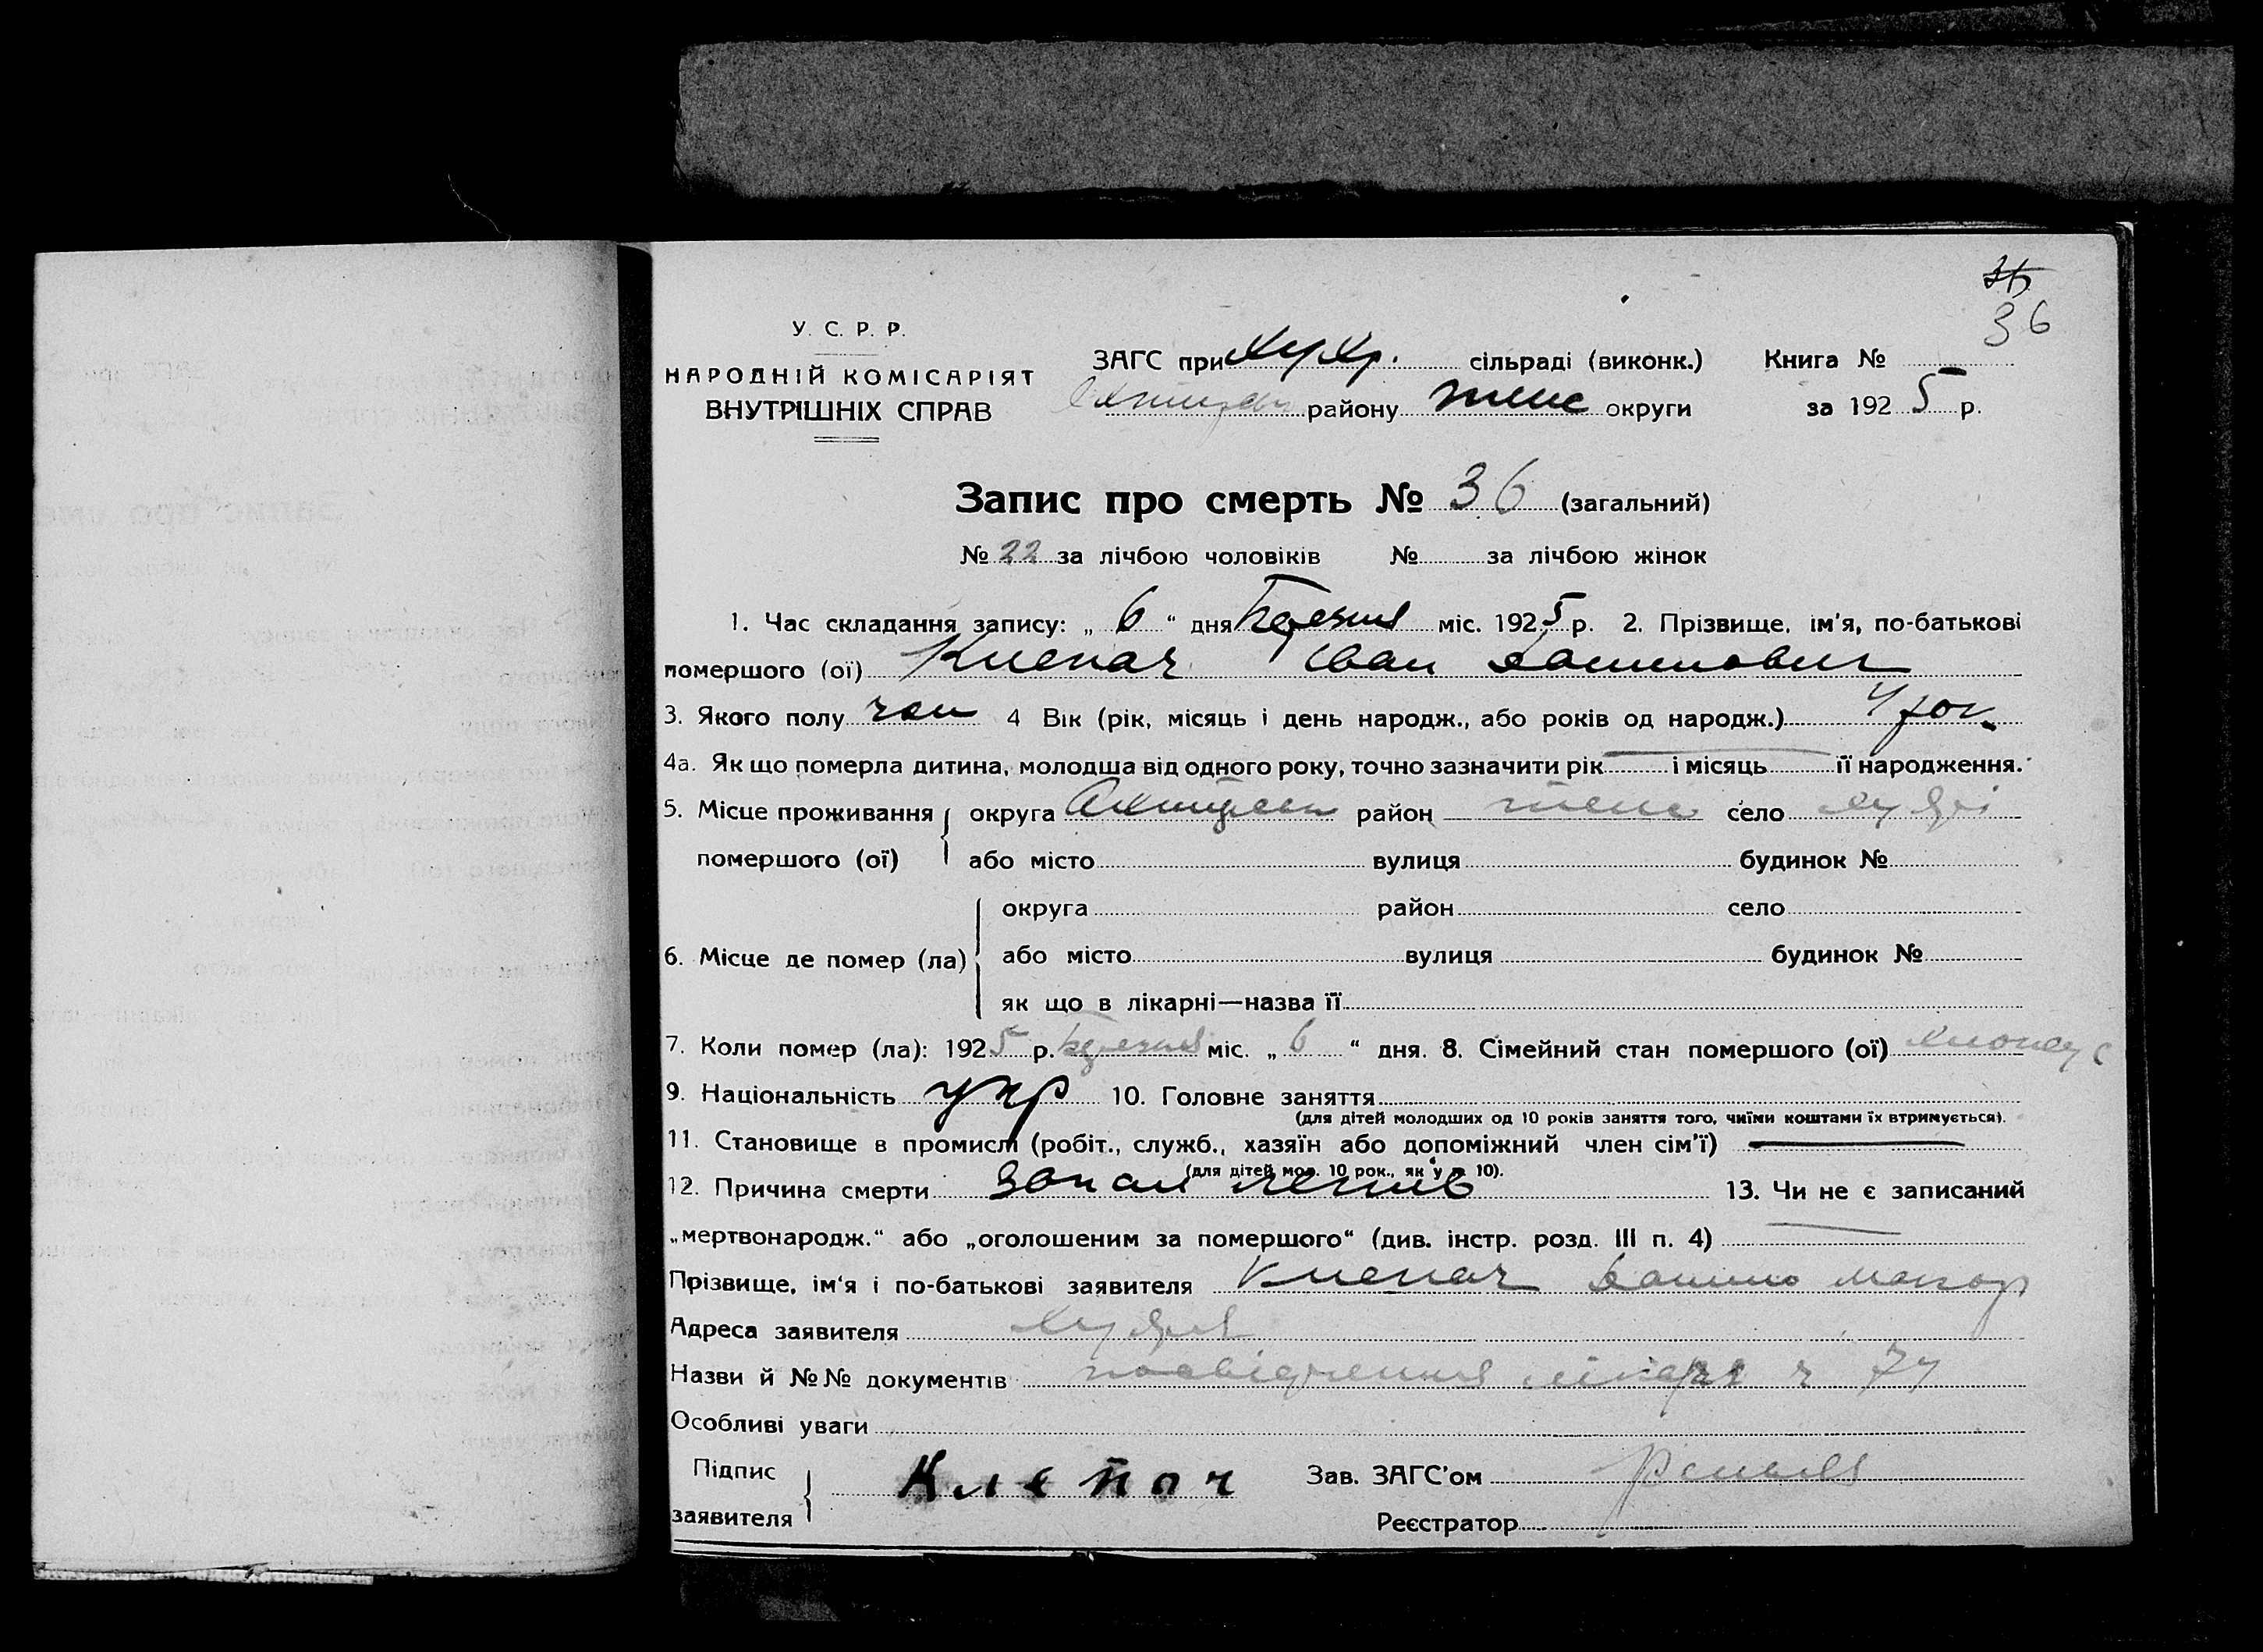 36
У. С. Р. Р.
НАРОДНІЙ КОМІСАРІЯТ
ВНУТРІШНІХ СПРАВ
ЗАГС при Хухр. сільраді (виконк.) Книга №
району теж округи за 1925 р.
Запис про смерть № 36 (загальний)
№ 22 за лічбою чоловіків № за лічбою жінок
1. Час складання запису: „ 6 “ дня березня міс. 1925 р. 2. Прізвище, ім'я, по-батькові
помершого (ої) Клепач Іван Данилович
3. Якого полу чол 4 Вік (рік, місяць і день народж., або років од народж.) 4 рок
4а. Як що померла дитина, молодша від одного року, точно зазначити рік і місяць її народження.
5. Місце проживання округа Охтирськ район теж село Хухрі
помершого (ої) або місто вулиця будинок №
округа район село
6. Місце де помер (ла) або місто вулиця будинок №
як що в лікарні—назва її
7. Коли помер (ла): 1925 р. березня міс. „ 6 “ дня. 8. Сімейний стан помершого (ої)
9. Національність укр 10. Головне заняття
(для дітей молодших од 10 років заняття того, чиїми коштами їх втримується).
11. Становище в промислі (робіт., служб., хазяїн або допоміжний член сім'ї)
(для дітей мол. 10 рок., як у п 10).
12. Причина смерти Запал легень 13. Чи не є записаний
„мертвонародж.“ або „оголошеним за помершого“ (див. інстр. розд. III п. 4)
Прізвище, ім'я і по-батькові заявителя Клепач Данило Макар
Адреса заявителя Хухря
Назви й №№ документів посвідчення лікаря ч 74
Особливі уваги
Підпис
заявителя Клепоч Зав. ЗАГС'ом
Реєстратор